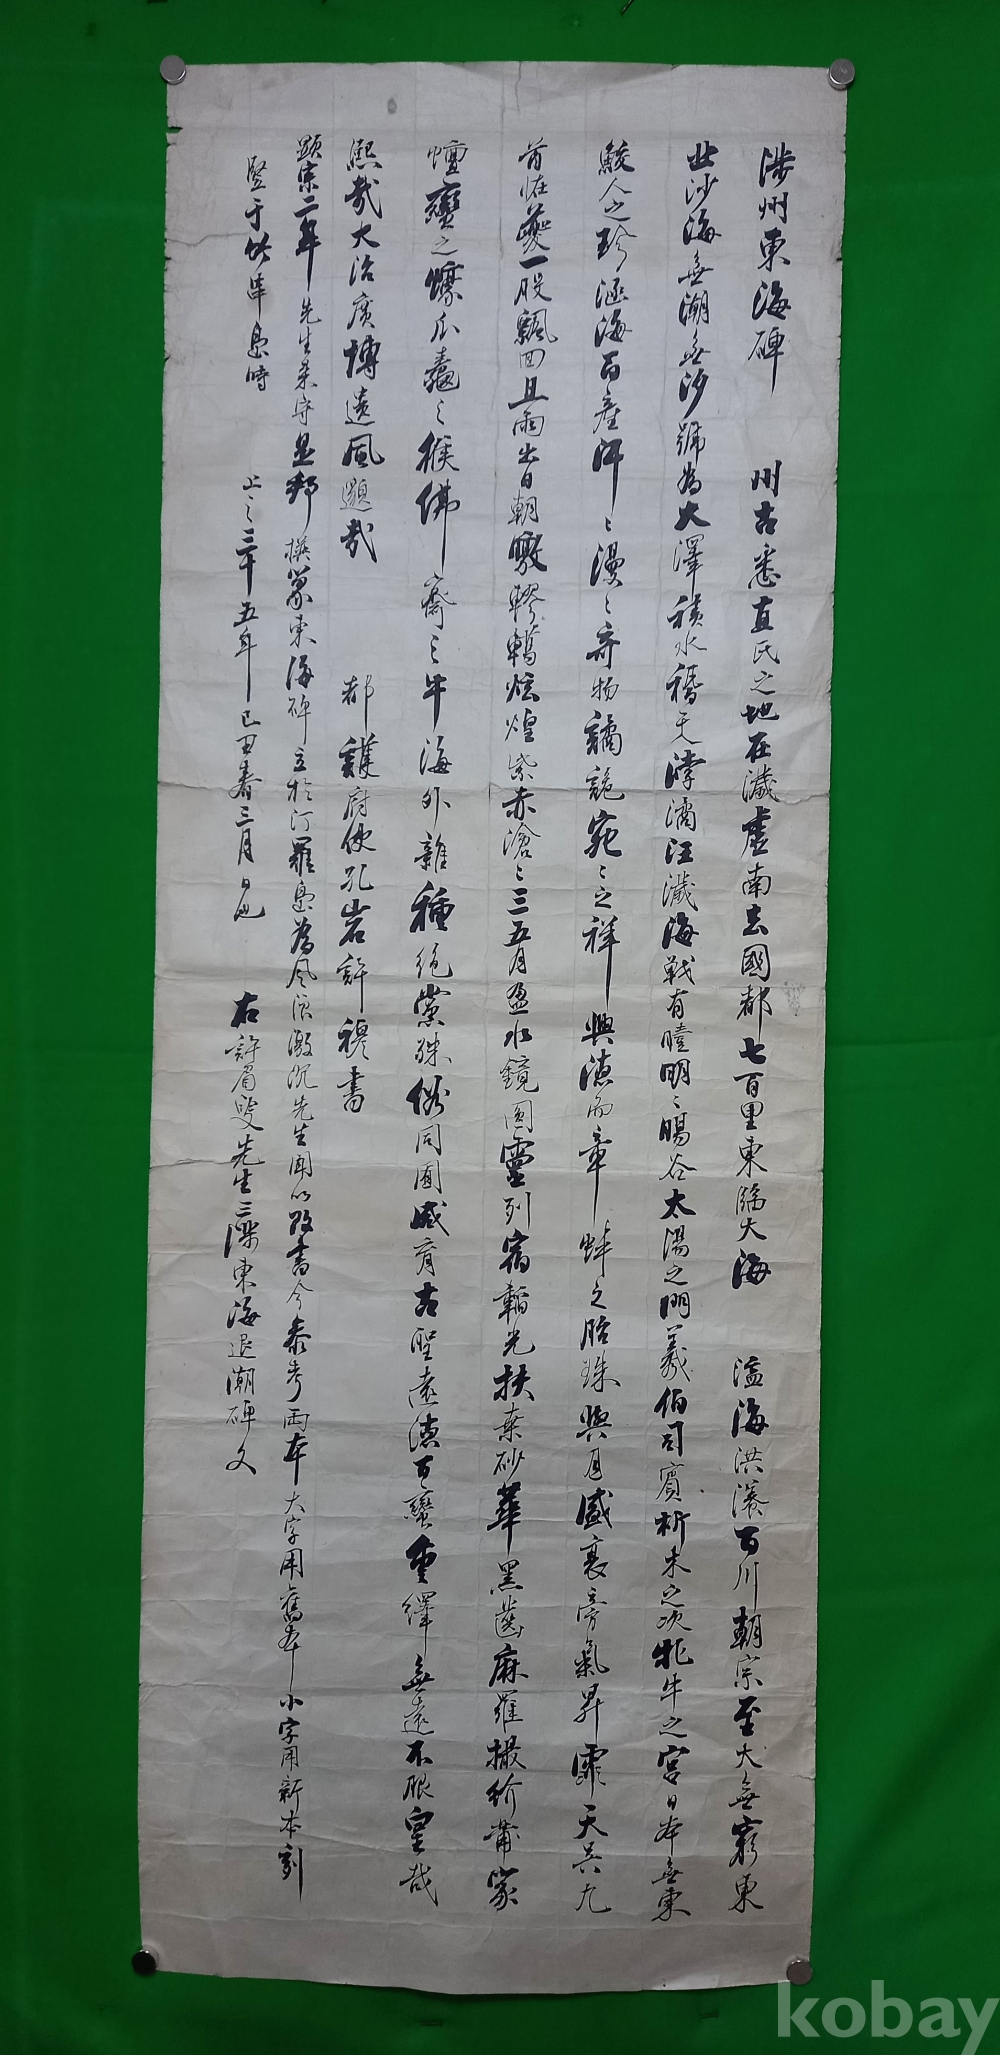 陟州東海碑 州古悉直氏之地在濊虛南去國都七百里東臨大海 瀛海洪瀁百川朝宗至大無窮東
北沙海無潮無汐號為大澤積水稽天浡潏汪濊海戰有曀明明暘谷太陽之門羲伯司賓析木之次牝牛之宮日本無東
鮫人之珍涵海百產汗汗漫漫奇物譎詭宛宛之祥興德而章蚌之胎珠與月盛衰旁氣昇霏天吳九
首怪夔一股飈回且雨出日朝暾轇轕炫煌紫赤滄滄三五月盈水鏡圓靈列宿韜光扶桑砂華黑齒麻羅撮紒莆家
蜒蠻之蠔爪蛙之猴佛齊之牛海外雜種絕黨殊俗同囿咸育古聖遠德百蠻重繹無遠不服皇哉
熙哉大治廣博遺風邈哉 都護府使孔岩許穆書
顯宗二年先生來守是邦撰篆東海碑立於汀羅島為風浪激沉先生聞以改書今參考兩本大字用舊本小字用新本刻
竪于竹串島時 上之三十五年己丑春三月日也 右許眉叟先生三陟東海退潮碑文
kobay